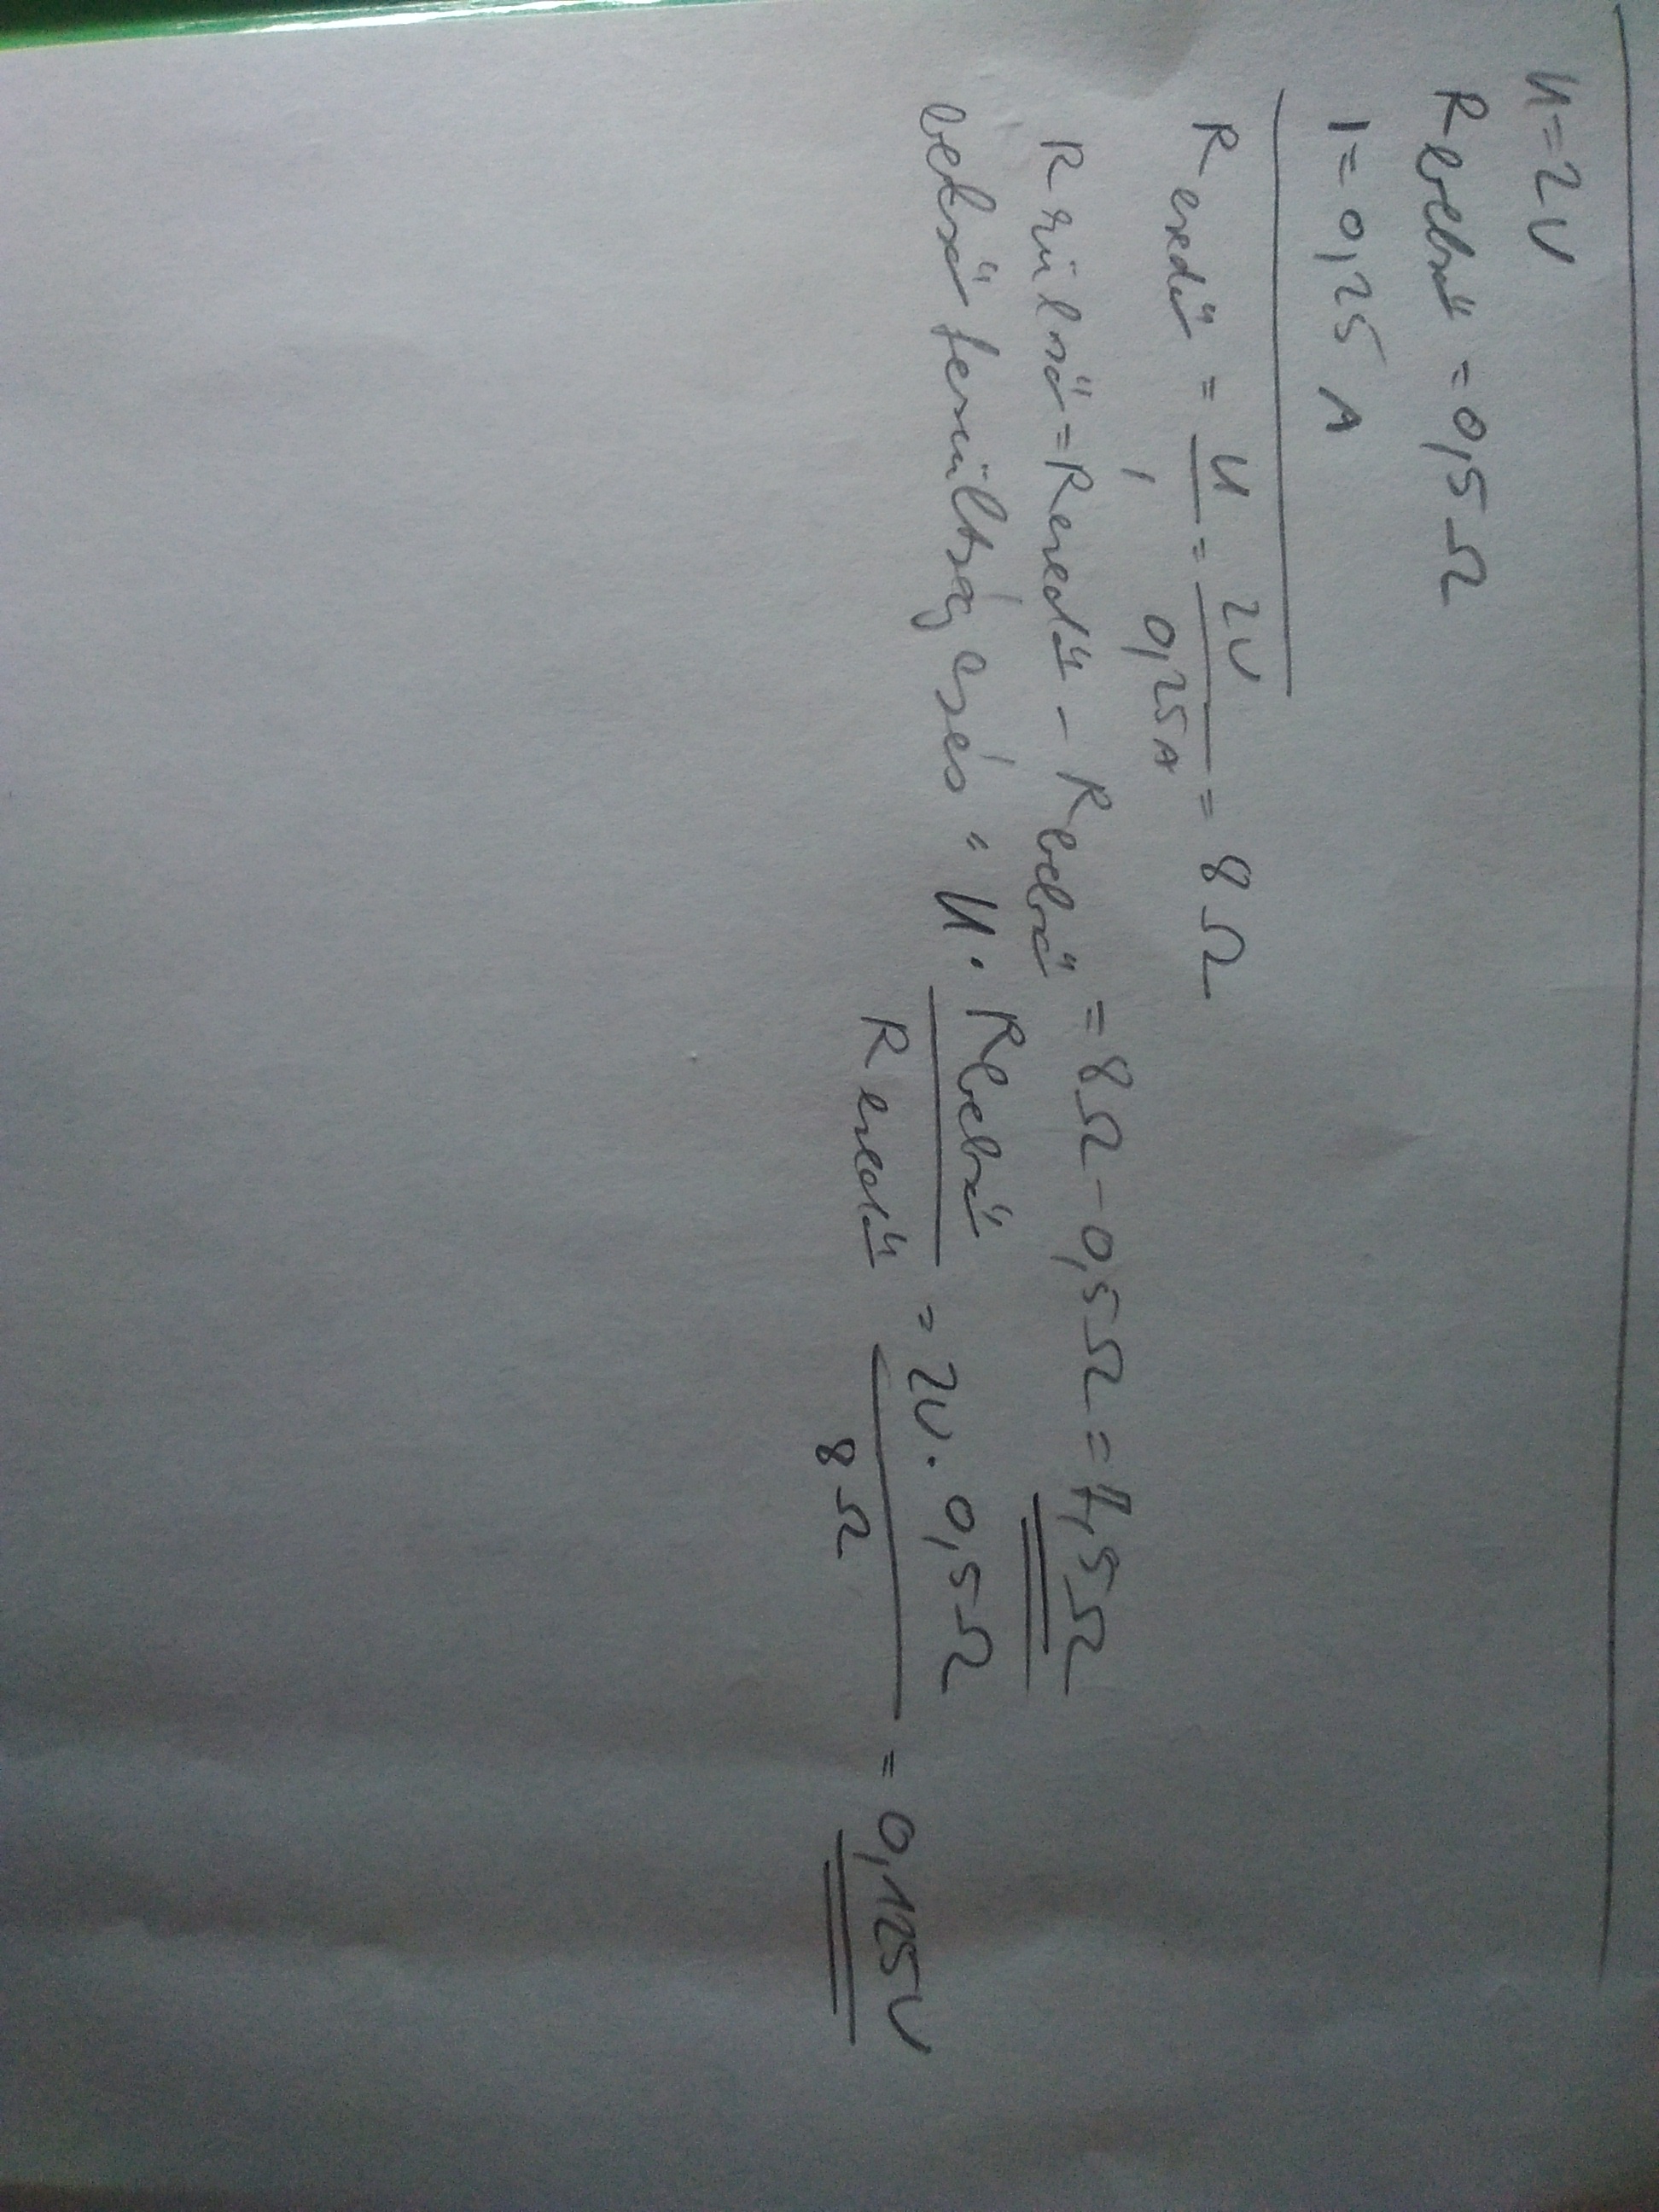 U=2V
Rbelső = 0,5Ω
I=0,25 A
Reredő = U/I = 2V/0,25A = 8Ω
Rkülső=Reredő - Rbelső = 8Ω-0,5Ω=7,5Ω
belső feszültség esés = U· Rbelső/Reredő = 2V·0,5Ω/8Ω = 0,125V